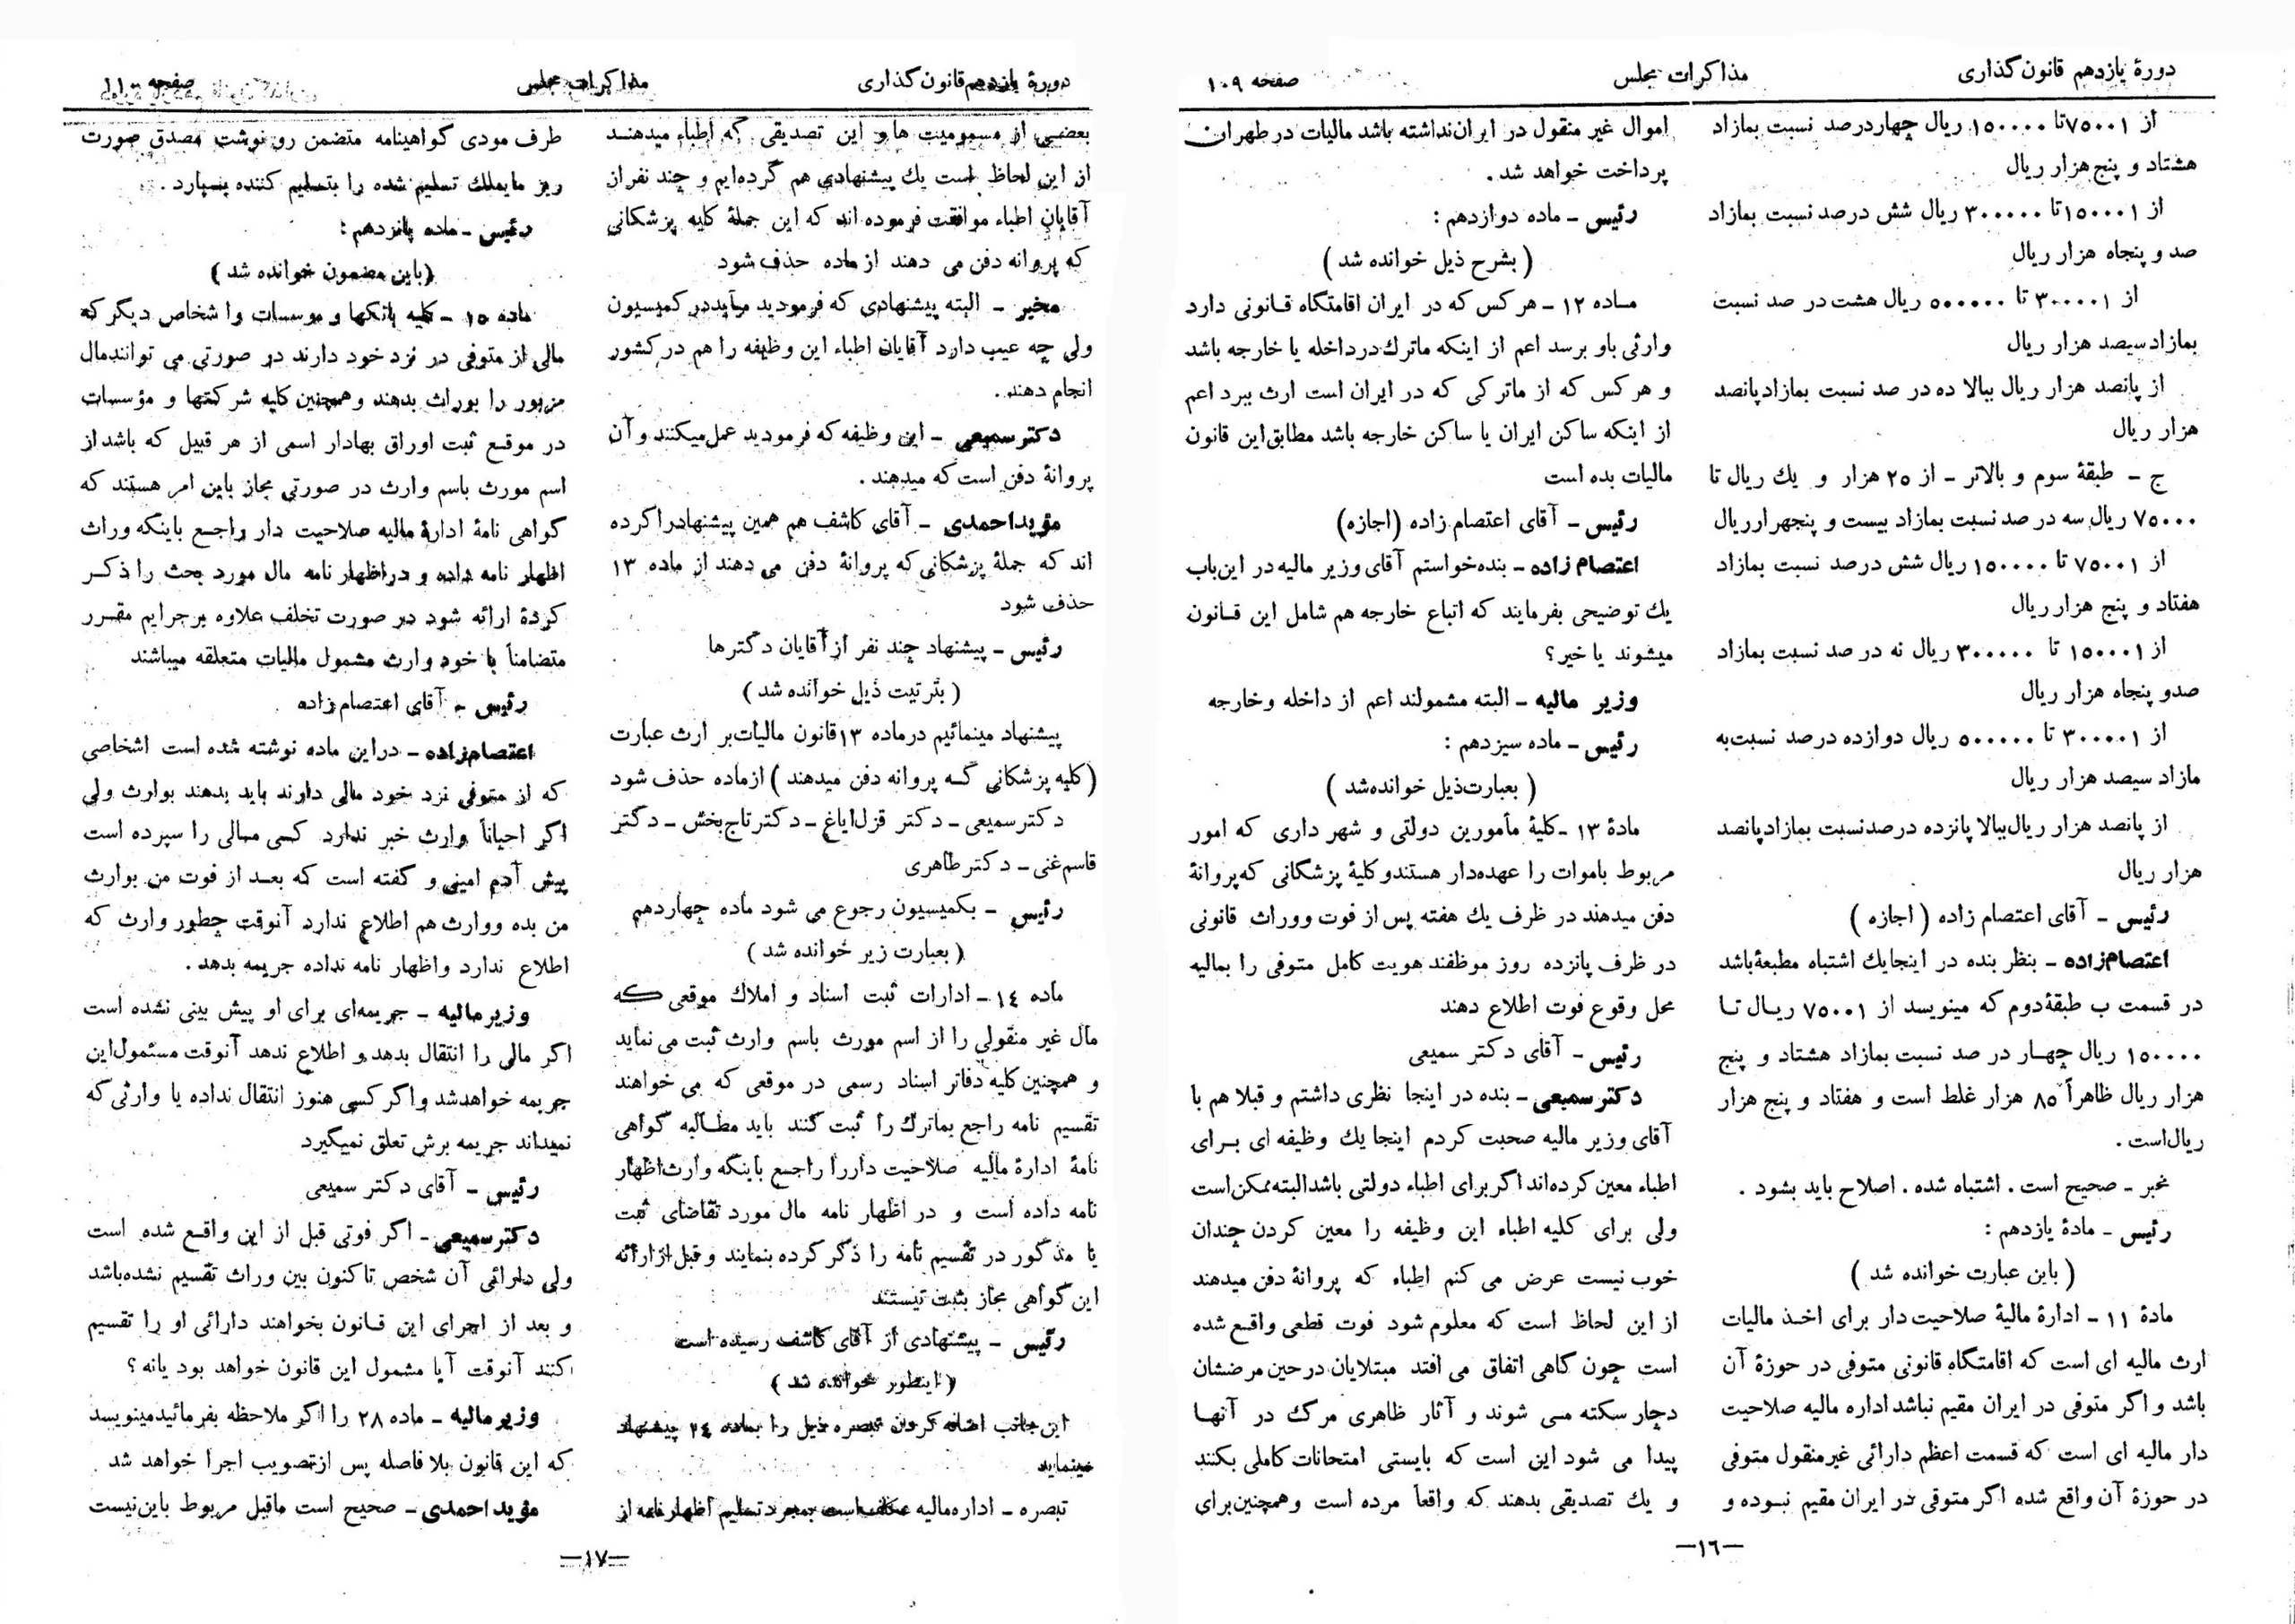 دورهٔ یازدهم قانون گذاری
مذاکرات مجلس
صفحه ۱۰۹
از ۷۵۰۰۱ تا ۱۵۰۰۰۰ ریال چهار درصد نسبت بمازاد
هشتاد و پنج هزار ریال
از ۱۵۰۰۰۱ تا ۳۰۰۰۰۰ ریال شش درصد نسبت بمازاد
صد و پنجاه هزار ریال
از ۳۰۰۰۰۱ تا ۵۰۰۰۰۰ ریال هشت در صد نسبت
بمازاد سیصد هزار ریال
از پانصد هزار ریال ببالا ده در صد نسبت بمازاد پانصد
هزار ریال
ج - طبقهٔ سوم و بالاتر - از ۲۵ هزار و یك ریال تا
۷۵۰۰۰ ریال سه در صد نسبت بمازاد بیست و پنجهرار ریال
از ۷۵۰۰۱ تا ۱۵۰۰۰۰ ریال شش درصد نسبت بمازاد
هفتاد و پنج هزار ریال
از ۱۵۰۰۰۱ تا ۳۰۰۰۰۰ ریال نه در صد نسبت بمازاد
صدو پنجاه هزار ریال
از ۳۰۰۰۰۱ تا ۵۰۰۰۰۰ ریال دوازده درصد نسبت به
مازاد سیصد هزار ریال
از پانصد هزار ریال ببالا پانزده درصد نسبت بمازاد پانصد
هزار ریال
رئیس - آقای اعتصام زاده (اجازه)
اعتصام‌زاده - بنظر بنده در اینجا یك اشتباه مطبعهٔ باشد
در قسمت ب طبقهٔ دوم که مینویسد از ۷۵۰۰۱ ریال تا
۱۵۰۰۰۰ ریال چهار در صد نسبت بمازاد هشتاد و پنج
هزار ریال ظاهراً ۸۵ هزار غلط است و هفتاد و پنج هزار
ریال است .
مخبر - صحیح است . اشتباه شده . اصلاح باید بشود .
رئیس - مادهٔ یازدهم :
(باین عبارت خوانده شد)
مادهٔ ۱۱ - ادارهٔ مالیهٔ صلاحیت دار برای اخذ مالیات
ارث مالیه ای است که اقامتگاه قانونی متوفی در حوزهٔ آن
باشد و اگر متوفی در ایران مقیم نباشد اداره مالیه صلاحیت
دار مالیه ای است که قسمت اعظم دارائی غیر منقول متوفی
در حوزهٔ آن واقع شده اگر متوفی در ایران مقیم نبوده و
اموال غیر منقول در ایران نداشته باشد مالیات در طهران
پرداخت خواهد شد .
رئیس - ماده دوازدهم :
(بشرح ذیل خوانده شد)
ماده ۱۲ - هر کس که در ایران اقامتگاه قانونی دارد
وارثی باو برسد اعم از اینکه ماترك در داخله یا خارجه باشد
و هر کس که از ماترکی که در ایران است ارث ببرد اعم
از اینکه ساکن ایران یا ساکن خارجه باشد مطابق این قانون
مالیات بده است
رئیس - آقای اعتصام زاده (اجازه)
اعتصام زاده - بنده خواستم آقای وزیر مالیه در این باب
یك توضیحی بفرمایند که اتباع خارجه هم شامل این قانون
میشوند یا خیر؟
وزیر مالیه - البته مشمولند اعم از داخله و خارجه
رئیس - ماده سیزدهم :
(بعبارت ذیل خوانده شد)
مادهٔ ۱۳ - کلیهٔ مأمورین دولتی و شهر داری که امور
مربوط باموات را عهده دار هستند و کلیهٔ پزشگانی که پروانهٔ
دفن میدهند در ظرف یك هفته پس از فوت و وراث قانونی
در ظرف پانزده روز موظفند هویت کامل متوفی را بمالیه
محل وقوع فوت اطلاع دهند
رئیس - آقای دکتر سمیعی
دکتر سمیعی - بنده در اینجا نظری داشتم و قبلا هم با
آقای وزیر مالیه صحبت کردم اینجا یك وظیفه ای برای
اطباء معین کرده‌اند اگر برای اطباء دولتی باشد البته ممکن است
ولی برای کلیه اطباء این وظیفه را معین کردن چندان
خوب نیست عرض می کنم اطباء که پروانهٔ دفن میدهند
از این لحاظ است که معلوم شود فوت قطعی واقع شده
است چون گاهی اتفاق می افتد مبتلایان در حین مرضشان
دچار سکته می شوند و آثار ظاهری مرگ در آنها
پیدا می شود این است که بایستی امتحانات کاملی بکنند
و یك تصدیقی بدهند که واقعاً مرده است و همچنین برای
-۱۶-
دورهٔ یازدهم قانون گذاری
مذاکرات مجلس
صفحه ۱۱۰
بعضی از مسمومیت ها و این تصدیقی که اطباء میدهند
از این لحاظ است یك پیشنهادی هم کرده‌ایم و چند نفر از
آقایان اطباء موافقت فرموده اند که این جملهٔ کلیه پزشکانی
که پروانه دفن می دهند از ماده حذف شود
مخبر - البته پیشنهادی که فرمودید میآید در کمیسیون
ولی چه عیب دارد آقایان اطباء این وظیفه را هم در کشور
انجام دهند .
دکتر سمیعی - این وظیفه که فرمودید عمل میکنند و آن
پروانهٔ دفن است که میدهند .
مؤید احمدی - آقای کاشف هم همین پیشنهاد را کرده
اند که جملهٔ پزشکانی که پروانهٔ دفن می دهند از ماده ۱۳
حذف شود
رئیس - پیشنهاد چند نفر از آقایان دکترها
(بترتیب ذیل خوانده شد)
پیشنهاد مینمائیم در ماده ۱۳ قانون مالیات بر ارث عبارت
(کلیه پزشکانی که پروانه دفن میدهند) از ماده حذف شود
دکتر سمیعی - دکتر قزل ایاغ - دکتر تاج بخش - دکتر
قاسم غنی - دکتر طاهری
رئیس - بکمیسیون رجوع می شود ماده چهاردهم
(بعبارت زیر خوانده شد)
ماده ۱۴ - ادارات ثبت اسناد و املاك موقعی که
مال غیر منقولی را از اسم مورث باسم وارث ثبت می نماید
و همچنین کلیه دفاتر اسناد رسمی در موقعی که می خواهند
تقسیم نامه راجع بماترك را ثبت کنند باید مطالبه گواهی
نامهٔ ادارهٔ مالیه صلاحیت دار را راجع باینکه وارث اظهار
نامه داده است و در اظهار نامه مال مورد تقاضای ثبت
یا مذکور در تقسیم نامه را ذکر کرده بنمایند و قبل از ارائه
این گواهی مجاز بثبت نیستند
رئیس - پیشنهادی از آقای کاشف رسیده است
(اینطور خوانده شد)
این جانب اضافه کردن تبصره ذیل را بماده ۲۴ پیشنهاد
مینماید
تبصره - اداره مالیه مکلف است بمجرد تسلیم اظهار نامه از
طرف مودی گواهینامه متضمن رونوشت مصدق صورت
ریز مایملك تسلیم شده را بتسلیم کننده بسپارد .
رئیس - ماده پانزدهم :
(باین مضمون خوانده شد)
ماده ۱۵ - کلیه بانکها و موسسات وا شخاص دیگر که
مالی از متوفی در نزد خود دارند در صورتی می توانند مال
مزبور را بوراث بدهند و همچنین کلیه شرکتها و مؤسسات
در موقع ثبت اوراق بهادار اسمی از هر قبیل که باشد از
اسم مورث باسم وارث در صورتی مجاز باین امر هستند که
گواهی نامهٔ ادارهٔ مالیه صلاحیت دار راجع باینکه وراث
اظهار نامه داده و در اظهار نامه مال مورد بحث را ذکر
کردهٔ ارائه شود در صورت تخلف علاوه بر جرایم مقرر
متضامناً با خود وارث مشمول مالیات متعلقه میباشند
رئیس - آقای اعتصام زاده
اعتصام‌زاده - در این ماده نوشته شده است اشخاصی
که از متوفی نزد خود مالی دارند باید بدهند بوارث ولی
اگر احیاناً وارث خبر ندارد کسی مالی را سپرده است
پیش آدم امینی و گفته است که بعد از فوت من بوارث
من بده ووارث هم اطلاع ندارد آنوقت چطور وارث که
اطلاع ندارد واظهار نامه نداده جریمه بدهد .
وزیر مالیه - جریمه‌ای برای او پیش بینی نشده است
اگر مالی را انتقال بدهد و اطلاع ندهد آنوقت مسئول این
جریمه خواهد شد و اگر کسی هنوز انتقال نداده یا وارثی که
نمیداند جریمه برش تعلق نمیگیرد
رئیس - آقای دکتر سمیعی
دکتر سمیعی - اگر فوتی قبل از این واقع شده است
ولی دارائی آن شخص تاکنون بین وراث تقسیم نشده باشد
و بعد از اجرای این قانون بخواهند دارائی او را تقسیم
کنند آنوقت آیا مشمول این قانون خواهد بود یا نه ؟
وزیر مالیه - ماده ۲۸ را اگر ملاحظه بفرمائید مینویسد
که این قانون بلا فاصله پس از تصویب اجرا خواهد شد
مؤید احمدی - صحیح است ماقبل مربوط باین نیست
-۱۷-